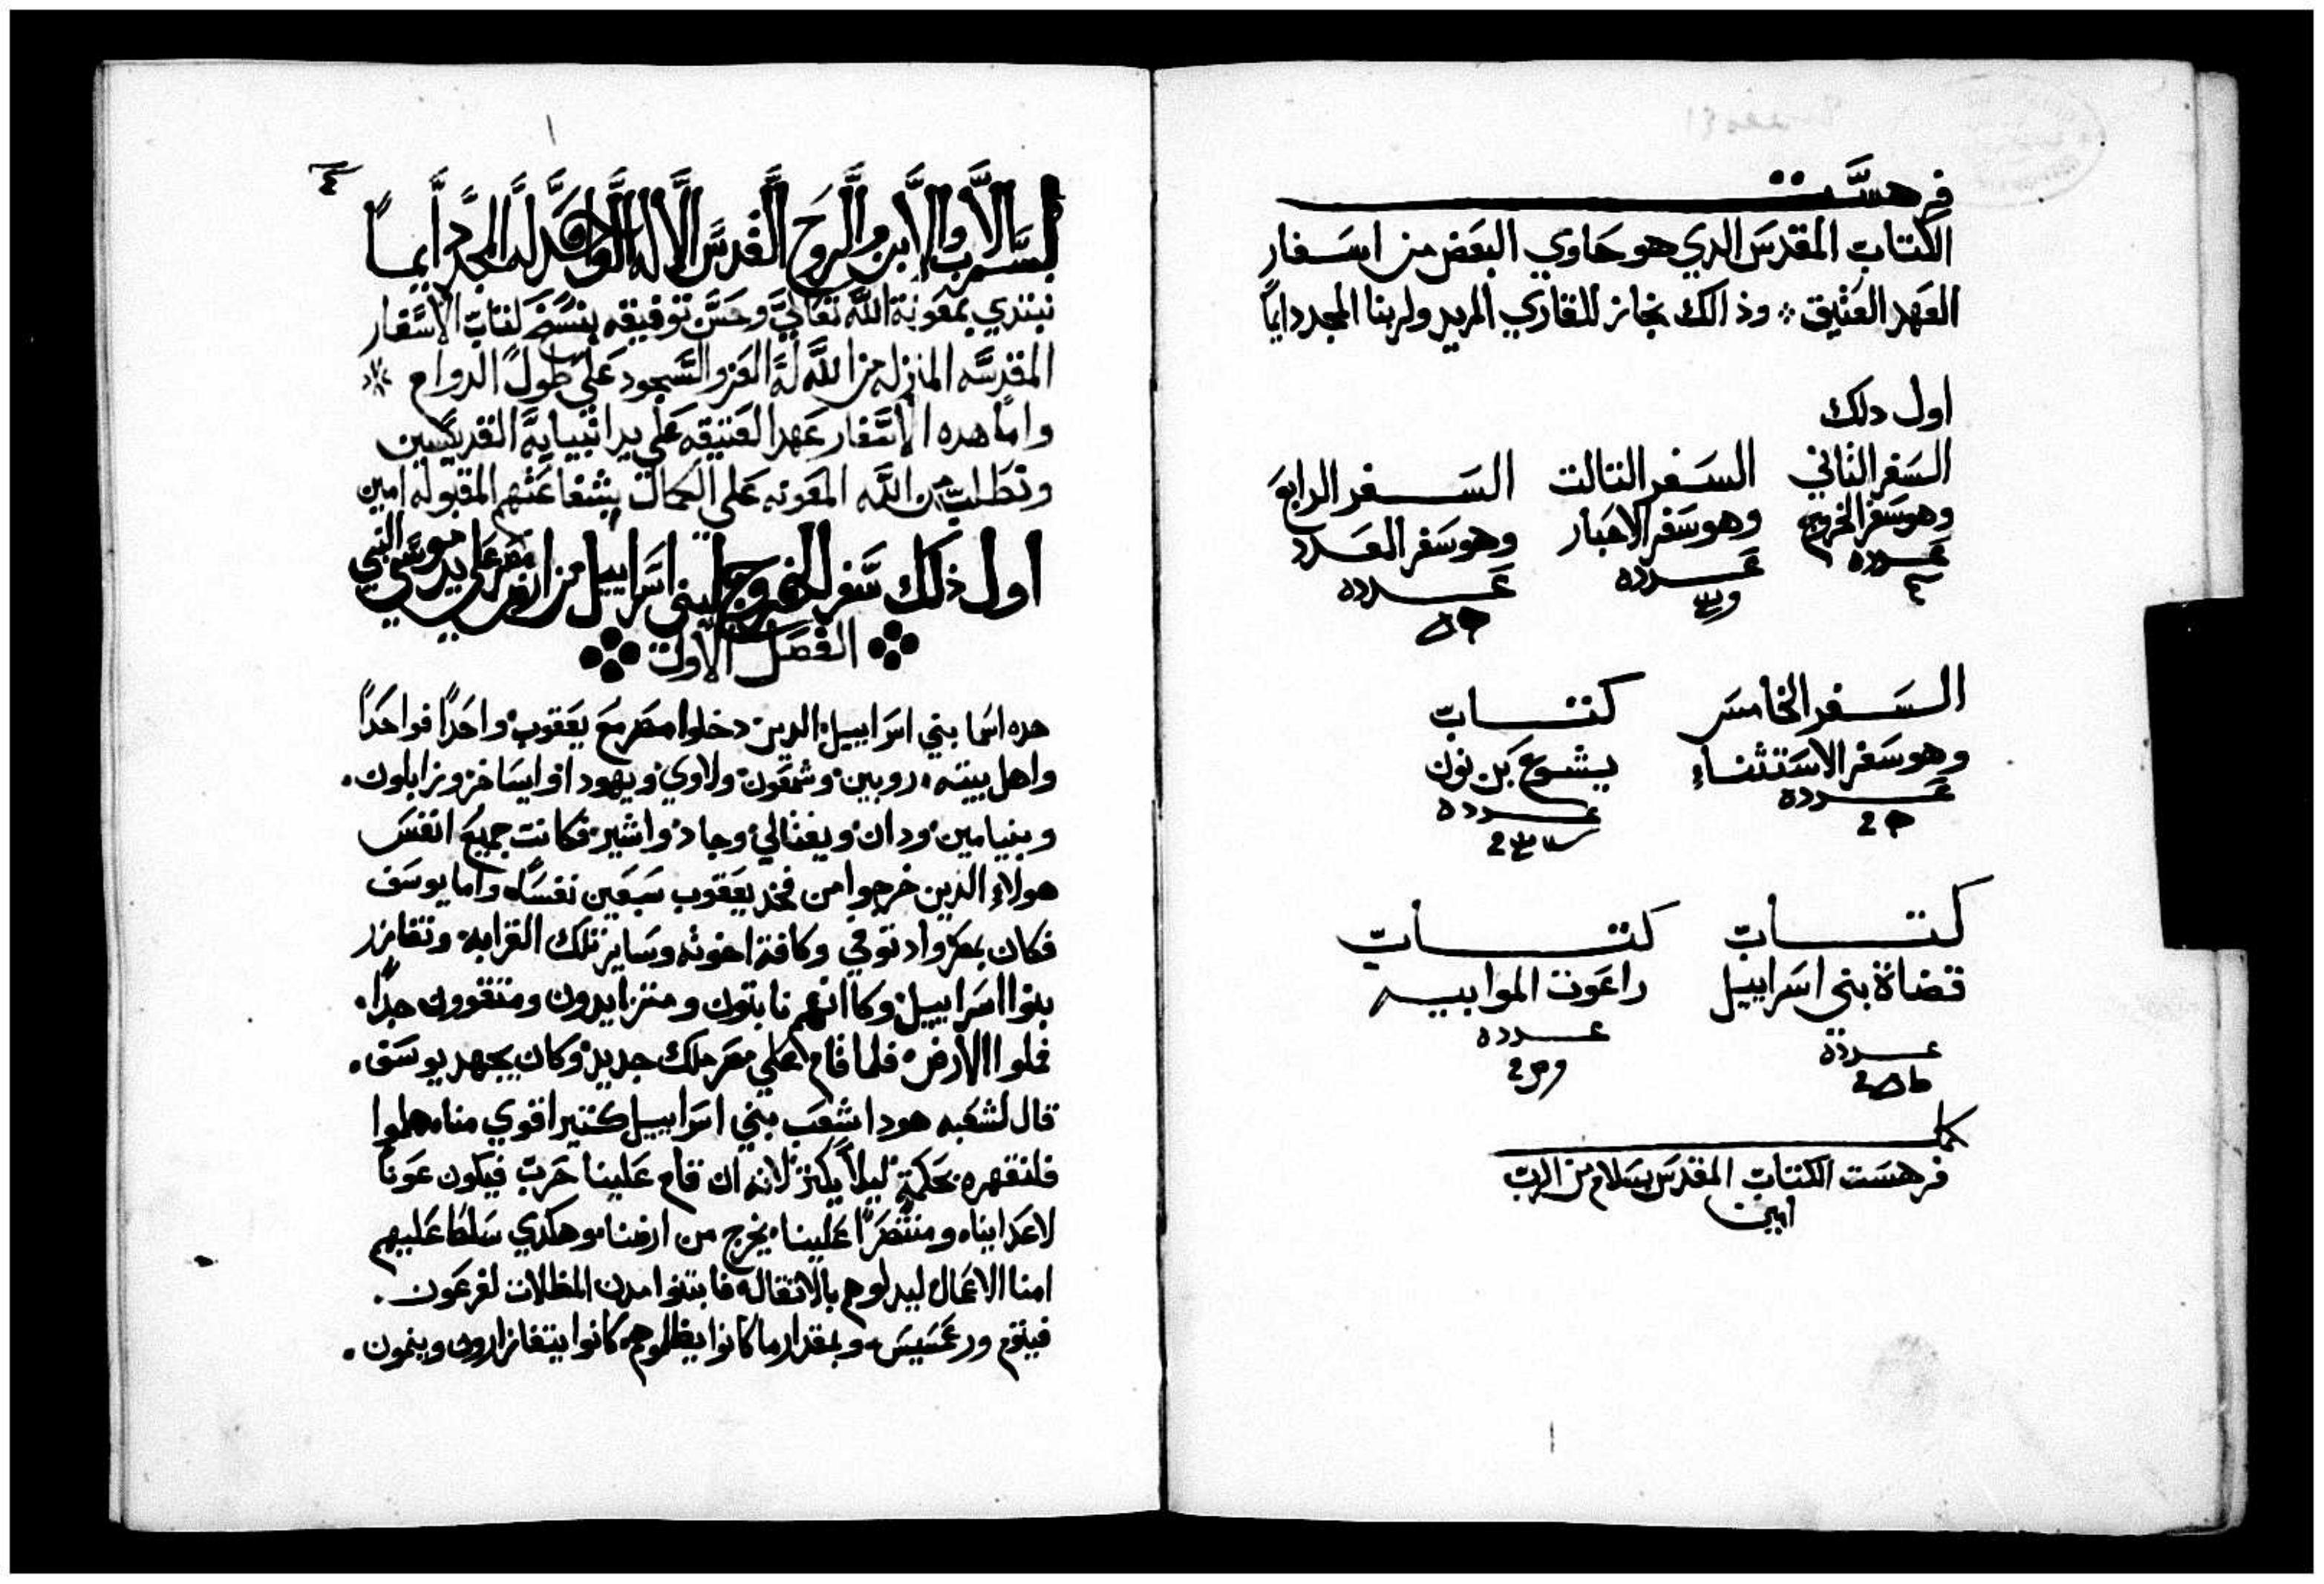 فرهست
الكتاب المقدس الدي هو حاوي البعض من اسفار
العهد العتيق وذالك نجاز للقاري المريد ولربنا المجد دايماً
اول دلك
السفر الثاني
وهو سفر الخروج
عدده
السفر التالت
وهو سفر الاحبار
عدده
السفر الرابع
وهو سفر العدد
عدده
السفر الخامس
وهو سفر الاستثناء
عدده
كتاب
يشوع بن نون
عدده
كتاب
قضاة بني اسراييل
عدده
كتاب
راعوت الموابيه
عدده
كمل
فرهست الكتاب المقدس بسلام من الرب
امين
٤
بسم الاب والابن والروح القدس الاله الواحد له المجد دايماً
نبتدي بمعونة الله تعالي وحسن توفيقه بنسخ كتاب الاسفار
المقدسه المنزله من الله له العز والسجود علي طول الدوام
واما هده الاسفار عهد العتيقه علي يد انبيايه القديسين
ونطلب من الله المعونه علي الكمال بشفاعتهم المقبوله امين
اول ذلك سفر الخروج لبني اسراييل من مصر علي يد موسي النبي
الفصل الاول
هده اسما بني اسراييل الدين دخلوا مصر مع يعقوب واحداً فواحداً
واهل بيته روبين وشمعون ولاوي ويهودا وايساخر وزابلون
وبنيامين ودان ويفتالي وجاد واشير فكانت جميع انفس
هولاء الذين خرجوا من فخد يعقوب سبعين نفساً واما يوسف
فكان بمصر واد توفي وكافة اخوته وساير تلك القرابه وتفازر
بنوا اسراييل وكا انهم نابتون ومتزايدون ومتقوون جداً
فملوا الارض فلما قام علي مصر ملك جديد وكان يجهد يوسف
قال لشعبه هودا شعب بني اسراييل كتير اقوي منا هلموا
فلنقهره بحكمة ليلاً يكتر لانه ان قام علينا حرب فيكون عوناً
لاعداينا ومنتصراً علينا يخرج من ارضنا وهكدي سلط عليهم
امنا الاعمال ليدلوهم بالاتقاله فابتنوا مدن المظلات لفرعون
فيتوم ورعمسيس وبمقدار ما كانوا يظلموهم كانوا يتفازارون وينمون